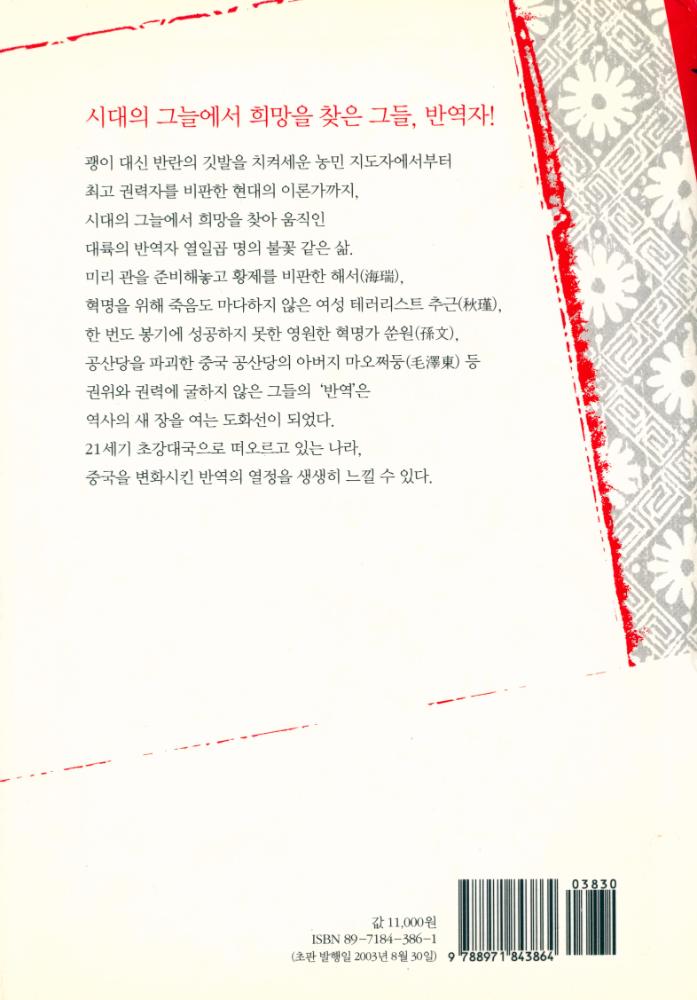 시대의 그늘에서 희망을 찾은 그들, 반역자!
괭이 대신 반란의 깃발을 치켜세운 농민 지도자에서부터
최고 권력자를 비판한 현대의 이론가까지,
시대의 그늘에서 희망을 찾아 움직인
대륙의 반역자 열일곱 명의 불꽃 같은 삶.
미리 관을 준비해놓고 황제를 비판한 해서(海瑞),
혁명을 위해 죽음도 마다하지 않은 여성 테러리스트 추근(秋瑾),
한 번도 봉기에 성공하지 못한 영원한 혁명가 쑨원(孫文),
공산당을 파괴한 중국 공산당의 아버지 마오쩌둥(毛澤東) 등
권위와 권력에 굴하지 않은 그들의 '반역'은
역사의 새 장을 여는 도화선이 되었다.
21세기 초강대국으로 떠오르고 있는 나라,
중국을 변화시킨 반역의 열정을 생생히 느낄 수 있다.
값 11,000원
ISBN 89-7184-386-1
(초판 발행일 2003년 8월 30일)
03830
9 788971 843864